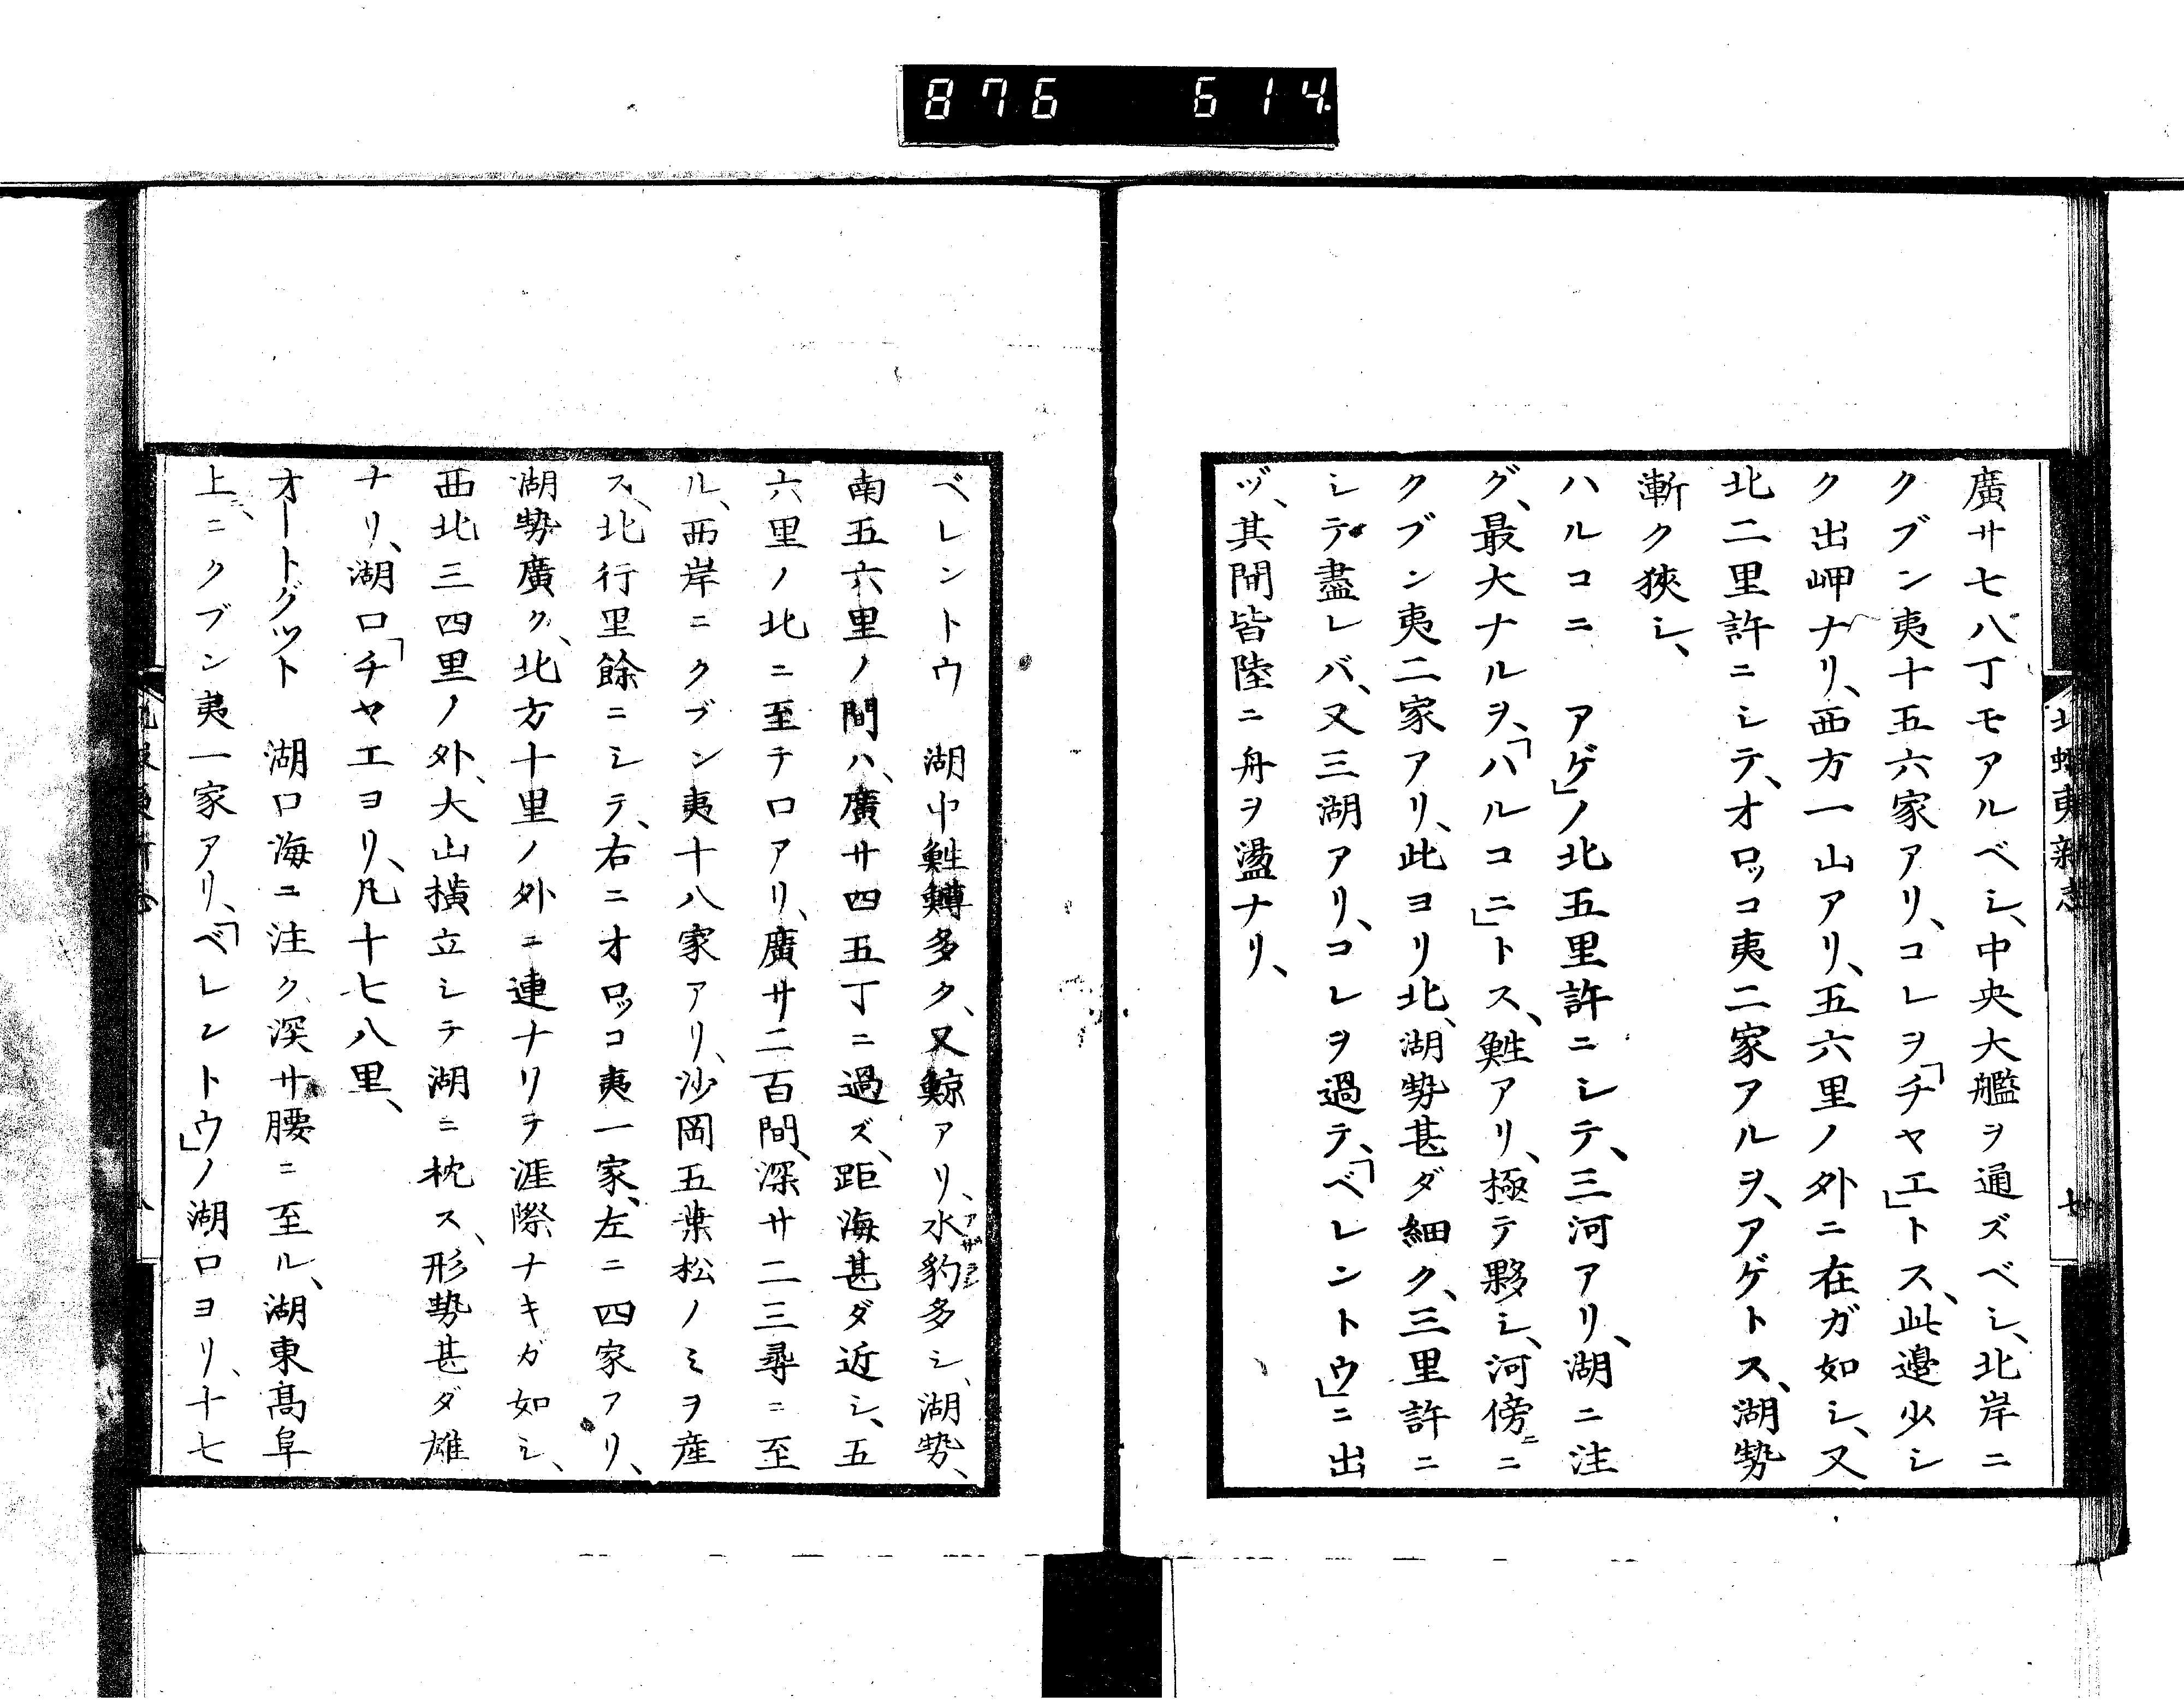 876 614
廣サ七八丁モアルベシ、中央大艦ヲ通ズベシ、北岸ニ
クブン夷十五六家アリ、コレヲ「チヤエ」トス、此邉少シ
ク出岬ナリ、西方一山アリ、五六里ノ外ニ在ガ如シ、又
北二里許ニシテ、オロッコ夷二家アルヲ、アゲトス、湖勢
漸ク狹シ、
ハルコニ アゲ」ノ北五里許ニシテ、三河アリ、湖ニ注
グ、最大ナルヲ、「ハルコニ」トス、鮏アリ、極テ夥シ、河傍ニニ
クブン夷二家アリ、此ヨリ北、湖勢甚ダ細ク、三里許ニ
シテ盡レバ、又三湖アリ、コレヲ過テ、「ベレントウ」ニ出
ヅ、其間皆陸ニ舟ヲ盪ナリ、
ベレントウ 湖中鮏鱒多ク、又鯨アリ、水豹多シ、湖勢、
南五六里ノ間ハ、廣サ四五丁ニ過ズ、距海甚ダ近シ、五
六里ノ北ニ至テロアリ、廣サ二百間、深サ二三尋ニ至
ル、西岸ニクブン夷十八家アリ、沙岡五葉松ノミヲ産
ス、北行里餘ニシテ、右ニオロッコ夷一家、左ニ四家アリ、
湖勢廣ク、北方十里ノ外ニ連ナリテ涯際ナキガ如シ、
西北三四里ノ外、大山橫立シテ湖ニ枕ス、形勢甚ダ雄
ナリ、湖口「チヤエヨリ、凡十七八里、
オートグット 湖口海ニ注ク、深サ腰ニ至ル、湖東髙阜
上ニ、ニクブン夷一家アリ、「ベレントウ」ノ湖口ヨリ、十七